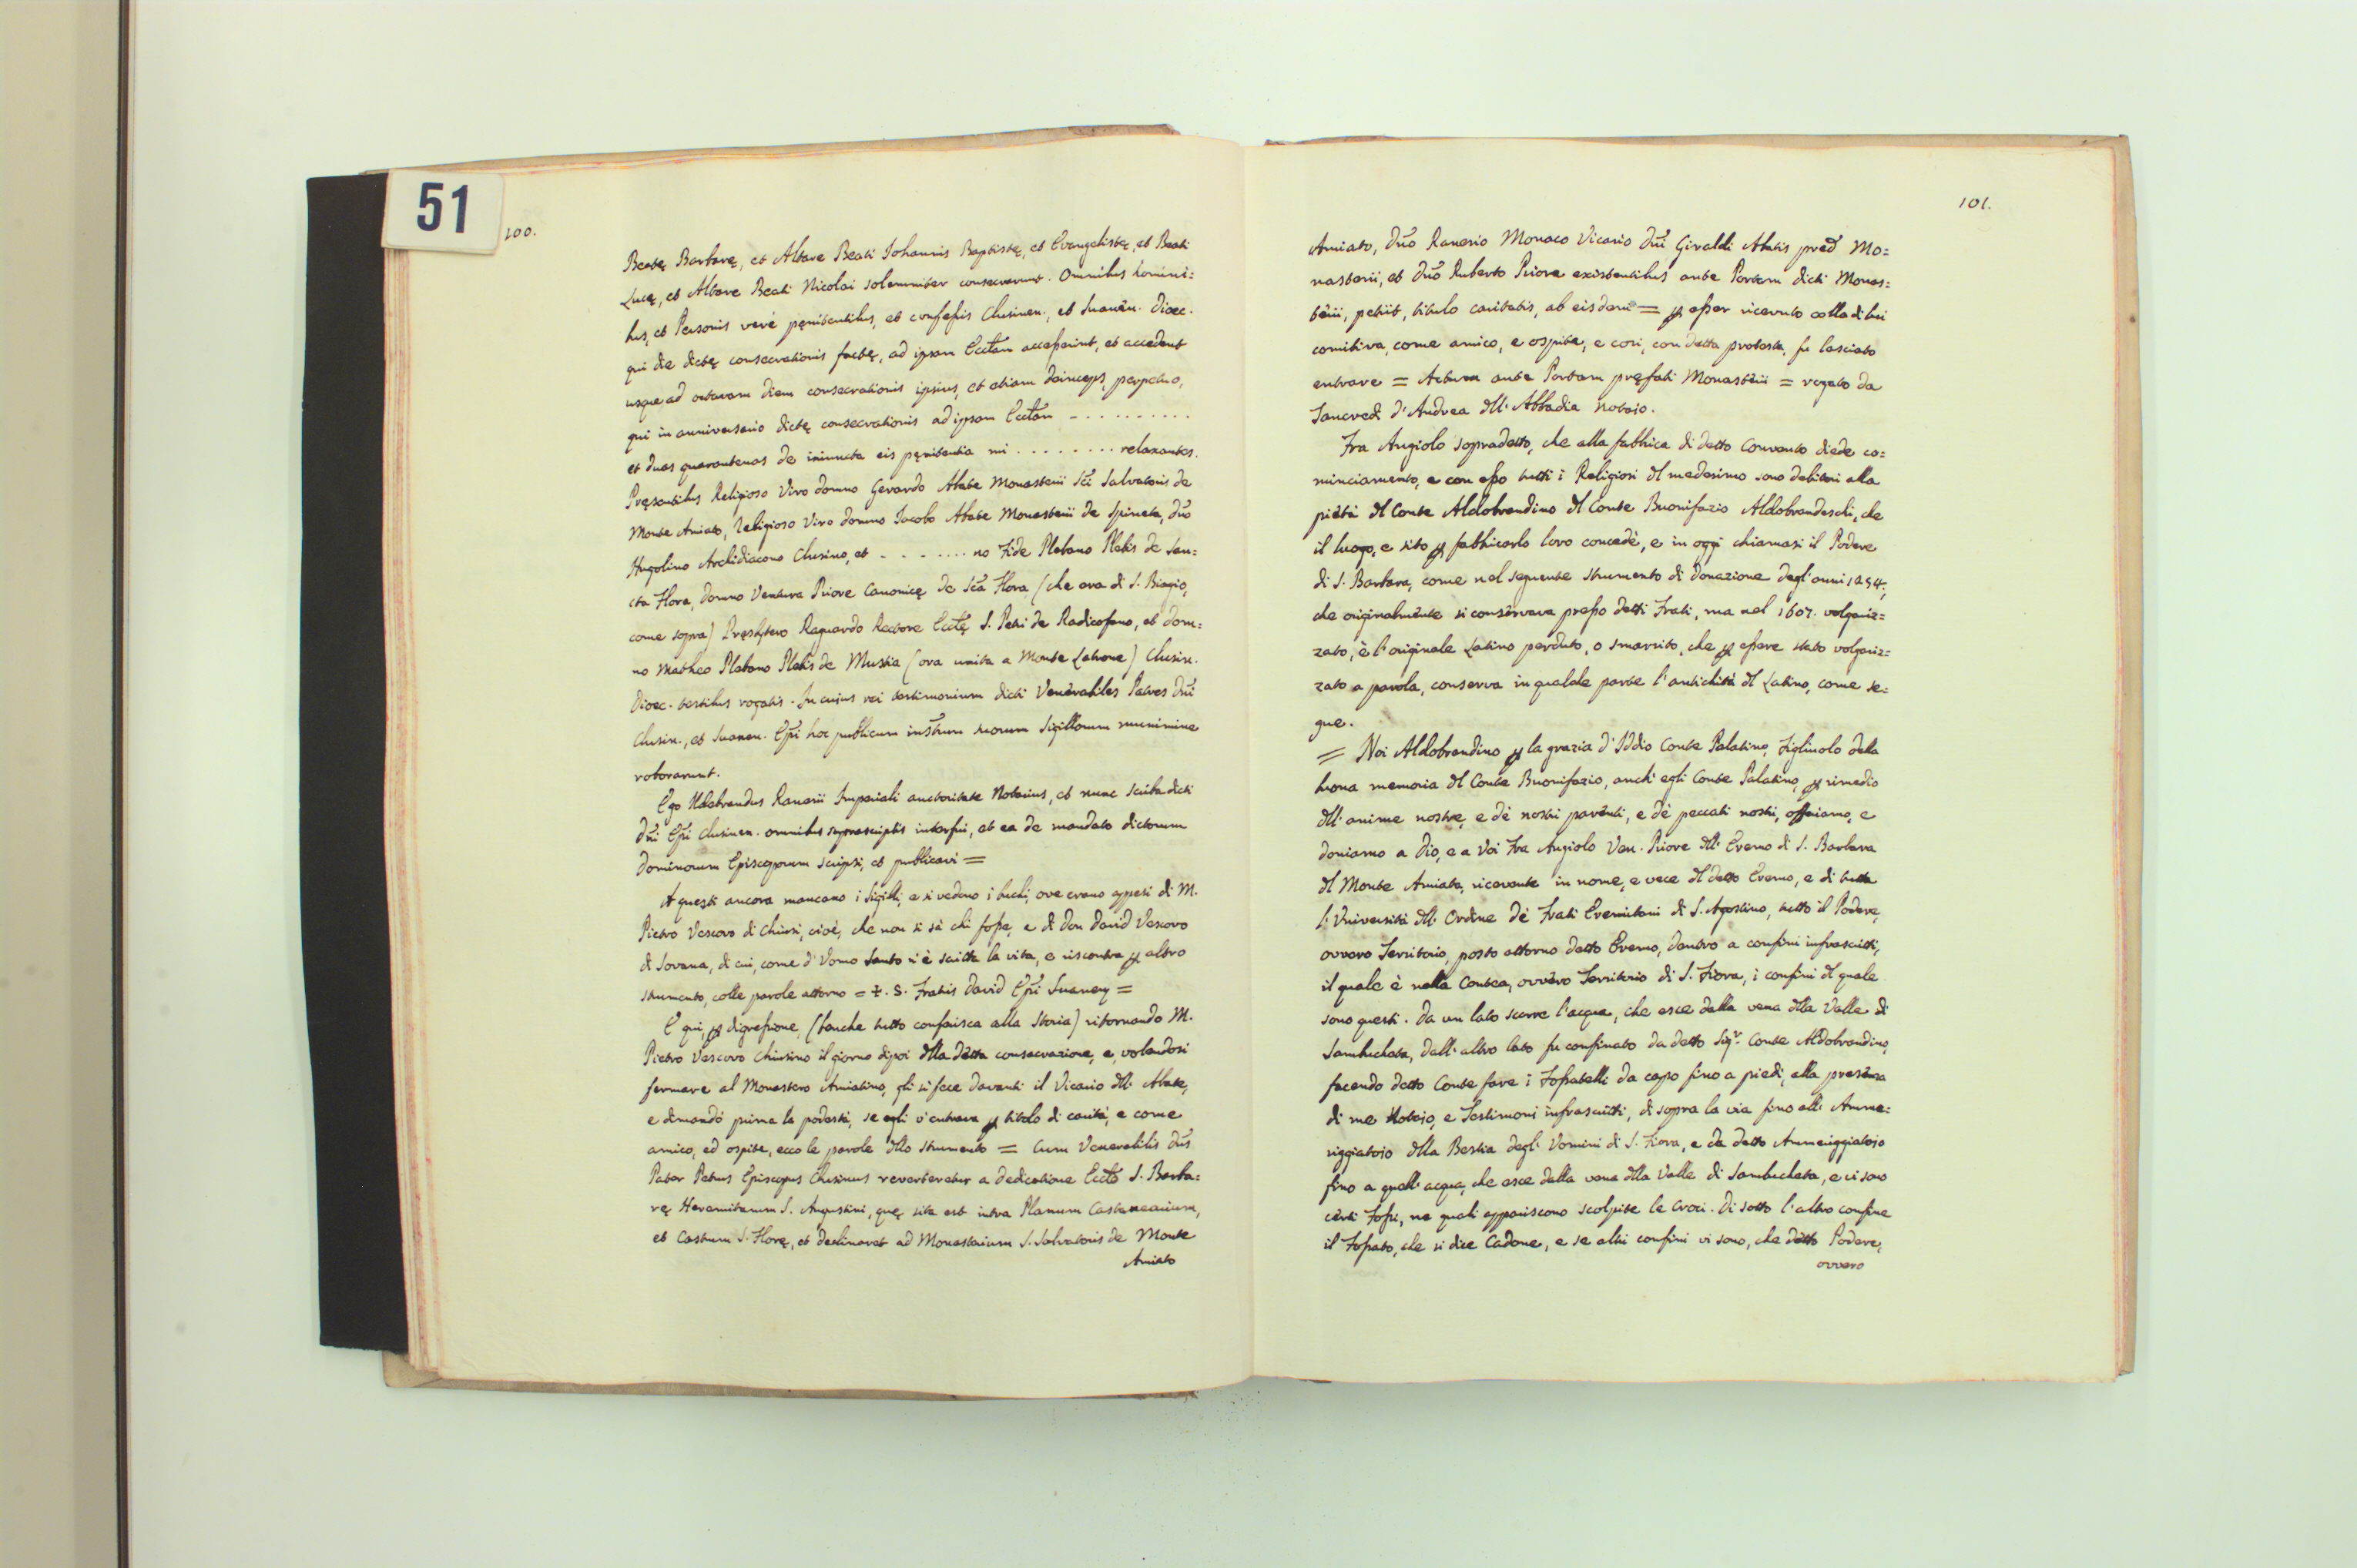 51
100.
Beatę Barbarę, et Altare Beati Johannis Baptistę, et Evangelistę, et Beati
Lucę, et Altare Beati Nicolai solemniter consecrarunt. Omnibus homini=
bus, et Personis verè pęnitentibus, et confessis Clusinen., et Suanen. Dioec.
qui die dictę consecrationis factę, ad ipsam Ecctam accesserint, et accedent
usque ad octavam diem consecrationis ipsius, et etiam deinceps, perpetuo,
qui in anniversario dictę consecrationis ad ipsam Ecctam - . . . . . . . . .
et duas quarantenas de iniuncta eis pęnitentia mi . . . . . . . . relaxantes.
Pręsentibus Religioso Viro domno Gerardo Abate Monasterii Sci Salvatoris de
Monte Amiato, Religioso Viro domno Iacobo Abate Monasterii de Spineta, dno
Hugolino Archidiacono Clusino, et - . - . . . . no Fide Plebano Plebis de San=
cta Flora, domno Ventura Priore Canonicę de Sca Flora (che era di S. Biagio,
come sopra) Pręsbytero Raguardo Rectore Ecctę S. Petri de Radicofano, et dom=
no Matheo Plebano Plebis de Mustia (ora unita a Monte Latrone) Clusin.
Dioec. testibus rogatis. In cuius rei testimonium dicti Venerabiles Patres dni
Clusin., et Suanen. Epi hoc publicum instrum suorum Sigillorum munimine
roborarunt.
Ego Ildebrandus Ranerii Imperiali auctoritate Notarius, et nunc Scriba dicti
dni Epi Clusinen. omnibus suprascriptis interfui, et ea de mandato dictorum
dominorum Episcoporum scripsi, et publicavi =
A questi ancora mancano i Sigilli, e si vedono i buchi, ove erano appesi di M.
Pietro Vescovo di Chiusi, cioè, che non si sà chi fosse, e di Don David Vescovo
di Sovana, di cui, come d'Vomo Santo si è scritta la vita, e riscontra ꝑ altro
strumento, colle parole attorno = ☩. S. Fratris David Epi Suaneņ =
E qui, ꝑ digressione, (benche tutto conferisca alla Storia) ritornando M.
Pietro Vescovo Chiusino il giorno dipoi dlla detta consecrazione, e, volendosi
fermare al Monastero Amiatino, gli si fece davanti il Vicario dll' Abate,
e dimandò prima la podestà, se egli v'entrava ꝑ titolo di carità, e come
amico, ed ospite, ecco le parole dllo strumento = Cum Venerabilis dns
Pater Petrus Episcopus Clusinus reverteretur a dedicatione Ecctę S. Barba=
rę Heremitarum S. Augustini, quę sita est intra Planum Castaneariium,
et Castrum S. Florę, et declinaret ad Monasterium S. Salvatoris de Monte
Amiato
101.
Amiato, dno Ranerio Monaco Vicario dni Giraldi Abatis pred Mo=
nasterii, et dno Ruberto Priore existentibus ante Portam dicti Monas=
terii, petiit, titulo caritatis, ab eisdem = ꝑ esser ricevuto colla di lui
comitiva, come amico, e ospite, e così, con detta protesta, fu lasciato
entrare = Actum ante Portam pręfati Monasterii = rogato da
Tancredi d'Andrea dll' Abbadia Notaio.
Fra Angiolo sopradetto, che alla fabbrica di detto Convento diede co=
minciamento, e con esso tutti i Religiosi dl medesimo sono debitori alla
pietà dl Conte Aldobrandino dl Conte Buonifazio Aldobrandeschi, che
il luogo, e sito ꝑ fabbricarlo loro concedè, e in oggi chiamasi il Podere
di S. Barbara, come nel seguente strumento di Donazione degl'anni 1254,
che originalmente si conservava presso detti Frati, ma nel 1607. volgariz=
zato, è l'originale Latino perduto, o smarrito, che ꝑ essere stato volgariz=
zato a parola, conserva in qualche parte l'antichità dl Latino, come se=
gue.
= Noi Aldobrandino ꝑ la grazia d'Iddio Conte Palatino, figliuolo della
buona memoria dl Conte Buonifazio, anch'egli Conte Palatino, ꝑ rimedio
dll' anime nostre, e de' nostri parenti, e de' peccati nostri, offeriamo, e
doniamo a Dio, e a Voi Fra Angiolo Ven. Priore dll' Eremo di S. Barbara
dl Monte Amiata, ricevente in nome, e vece dl detto Eremo, e di tutta
l'Vniversità dll' Ordine de' Frati Eremitani di S. Agostino, tutto il Podere,
ovvero Territorio, posto attorno detto Eremo, dentro a confini infrascritti,
il quale è nella Contea, ovvero Territorio di S. Fiora, i confini dl quale
sono questi. Da un lato scorre l'acqua, che esce dalla vena dlla Valle di
Sambucheta, dall'altro lato fu confinato da detto Sig.r Conte Aldobrandino,
facendo detto Conte fare i Fossatelli da capo fino a piedi, alla presenza
di me Notaio, e Testimoni infrascritti, di sopra la via fino all' Amme=
riggiatoio dlla Bestia degl' Vomini di S. Fiora, e da detto Ammeriggiatoio
fino a quell'acqua, che esce dalla vena dlla Valle di Sambucheta, e vi sono
certi Fossi, ne quali appariscono scolpite le Croci. Di sotto l'altro confine
il Fossato, che si dice Cadone, e se altri confini vi sono, che detto Podere,
ovvero